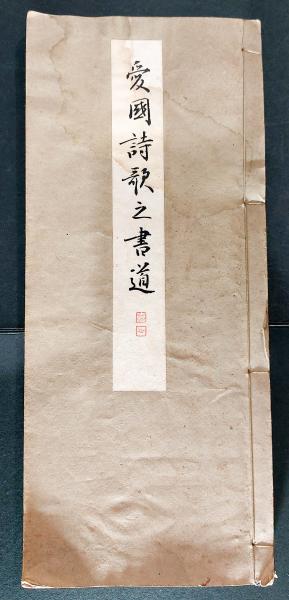 愛國詩歌之書道